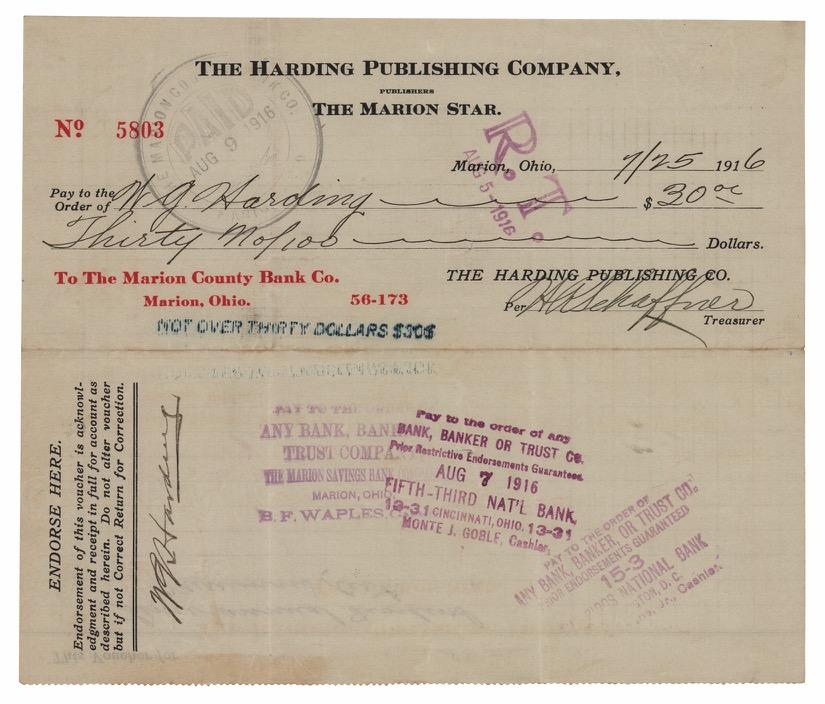 THE HARDING PUBLISHING COMPANY,
PUBLISHERS
THE MARION STAR.
Nº 5803
PAID
AUG 9 1916
R.T.
AUG 5 1916
Marion, Ohio, 7/25 1916
Pay to the
Order of W G Harding $30 00
Thirty No/100 Dollars.
To The Marion County Bank Co.
Marion, Ohio. 56-173
THE HARDING PUBLISHING CO.
Per H A Schaffner
Treasurer
NOT OVER THIRTY DOLLARS $30$
ENDORSE HERE.
Endorsement of this voucher is acknowl-
edgment and receipt in full for account as
described herein. Do not alter voucher
but if not Correct Return for Correction.
W G Harding
PAY TO THE ORDER
ANY BANK, BANK
TRUST COMPA
THE MARION SAVINGS BANK
MARION, OHIO
B. F. WAPLES, C
Pay to the order of any
BANK, BANKER OR TRUST CO.
Prior Restrictive Endorsements Guaranteed
AUG 7 1916
FIFTH-THIRD NAT'L BANK,
13-31 CINCINNATI, OHIO. 13-31
MONTE J. GOBLE, Cashier
PAY TO THE ORDER OF
ANY BANK, BANKER, OR TRUST CO.
PRIOR ENDORSEMENTS GUARANTEED
15-3
NATIONAL BANK
TON, D. C.
Jr., Cashier
This Voucher for